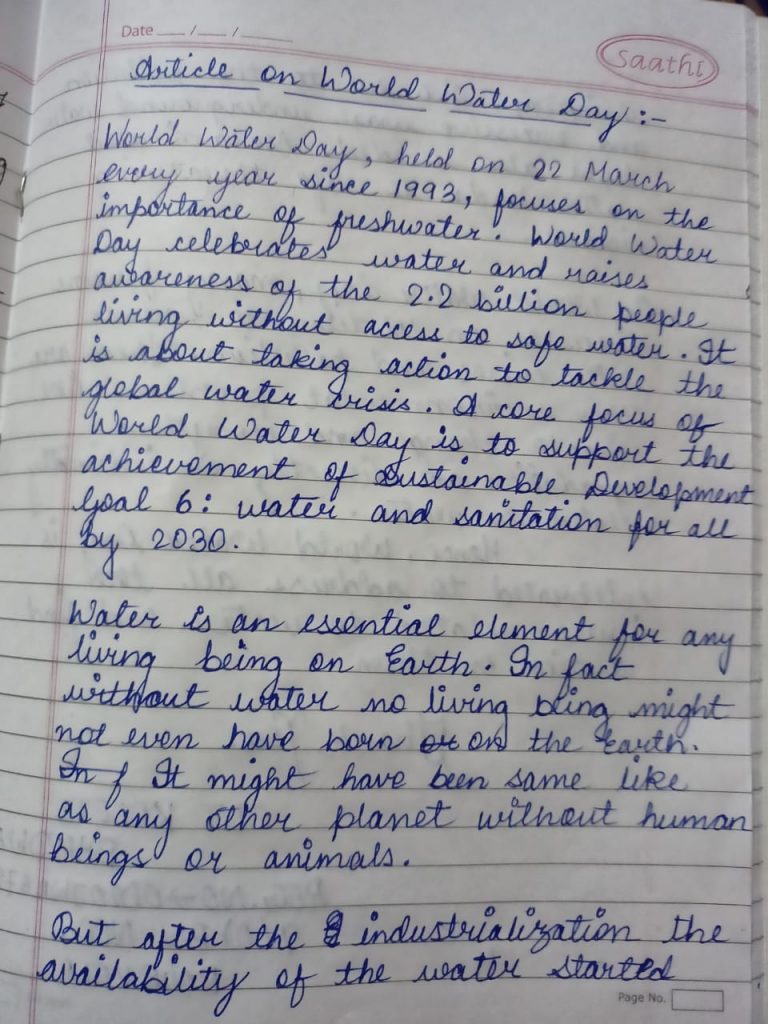 Date __ / __ / ____
Saathi
Article on World Water Day :-
World Water Day, held on 22 March
every year since 1993, focuses on the
importance of freshwater. World Water
Day celebrates water and raises
awareness of the 2.2 billion people
living without access to safe water. It
is about taking action to tackle the
global water crisis. A core focus of
World Water Day is to support the
achievement of Sustainable Development
Goal 6: water and sanitation for all
by 2030.
Water is an essential element for any
living being on Earth. In fact
without water no living being might
not even have born or on the Earth.
In f It might have been same like
as any other planet without human
beings or animals.
But after the industrialization the
availability of the water started
Page No.